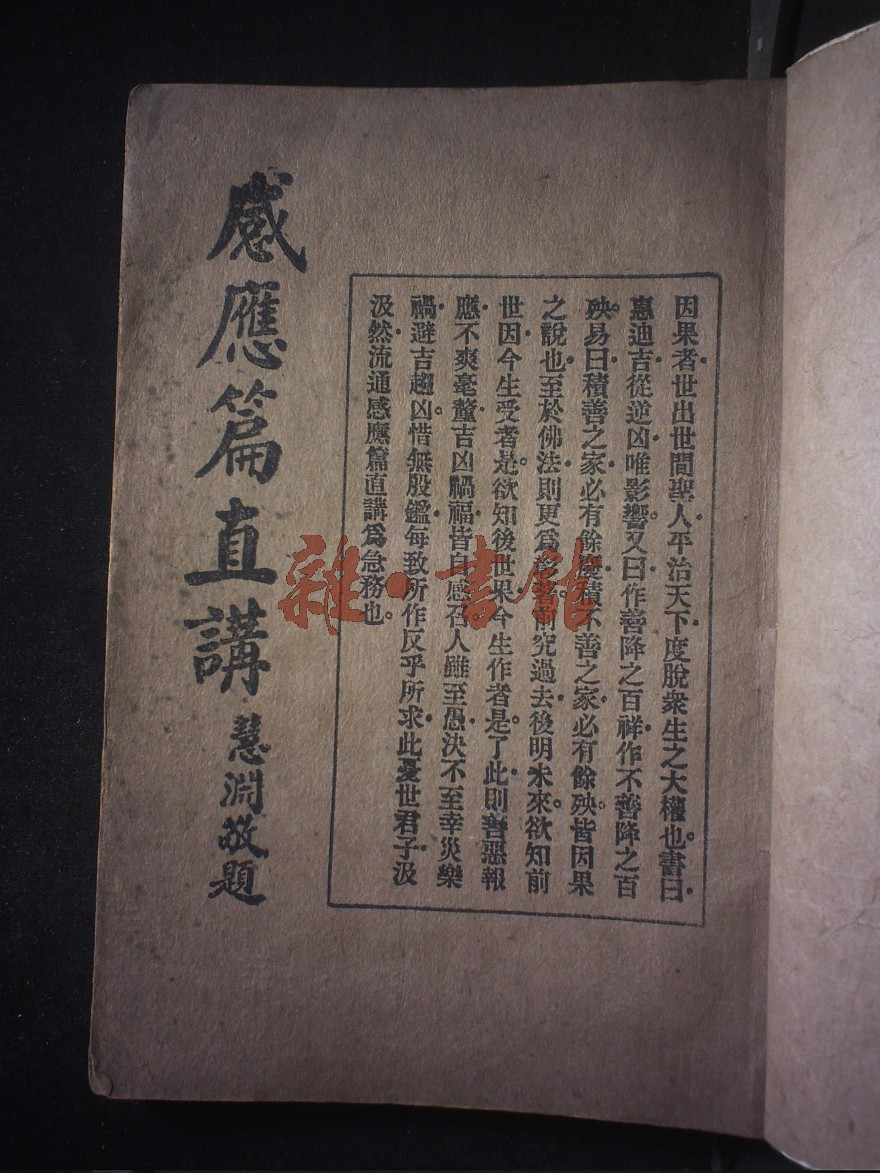 因果者・世出世間聖人・平治天下・度脫衆生之大權也。書曰・
惠迪吉・從逆凶・唯影響。又曰・作善降之百祥・作不善降之百
殃。易曰・積善之家・必有餘慶・積不善之家・必有餘殃。皆因果
之說也・至於佛法・則更爲前究過去・後明未來。欲知前
世因・今生受者是。欲知後世果・今生作者是。了此・則善惡報
應・不爽毫釐・吉凶禍福・皆自感召・人雖至愚・決不至幸災樂
禍・避吉趨凶。惜無殷鑑・每致所作反乎所求・此憂世君子・汲
汲然・流通感應篇直講爲急務也。
感應篇直講 慧淵敬題
雜·書館